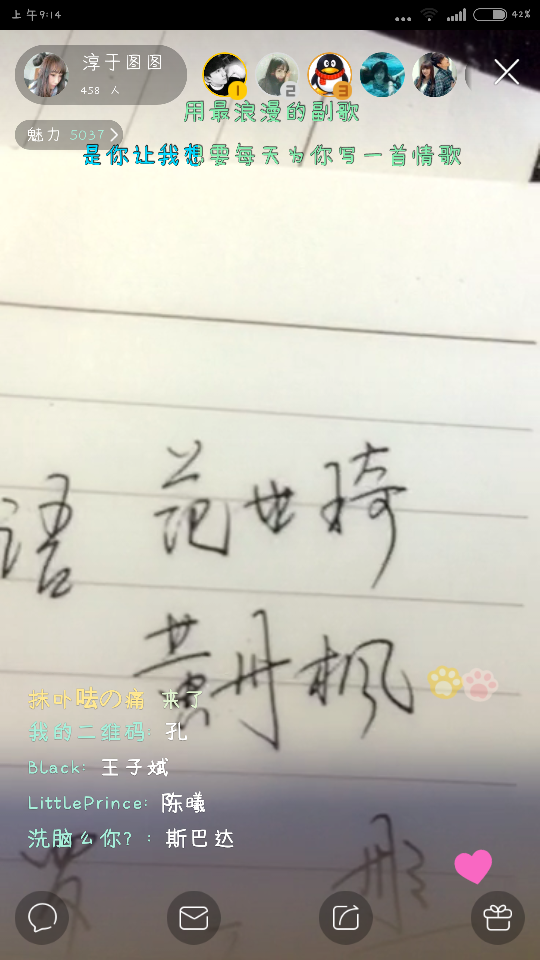 上午9:14
42%
淳于图图
458 人
1
2
3
用最浪漫的副歌
魅力 5037
是你让我想要每天为你写一首情歌
语 范世琦
黄丹枫
抹卟呿の痛 来了
我的二维码: 孔
Black: 王子斌
LittlePrince: 陈曦
洗脑么你?: 斯巴达